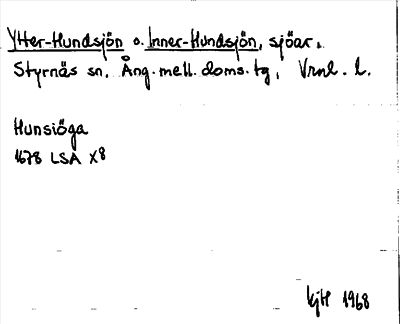 Ytter-Hundsjön o. Inner-Hundsjön, sjöar.
Styrnäs sn, Ång. mell. doms. tg, Vrnl. l.
Hunsiöga
1678 LSA X8
kjH 1968